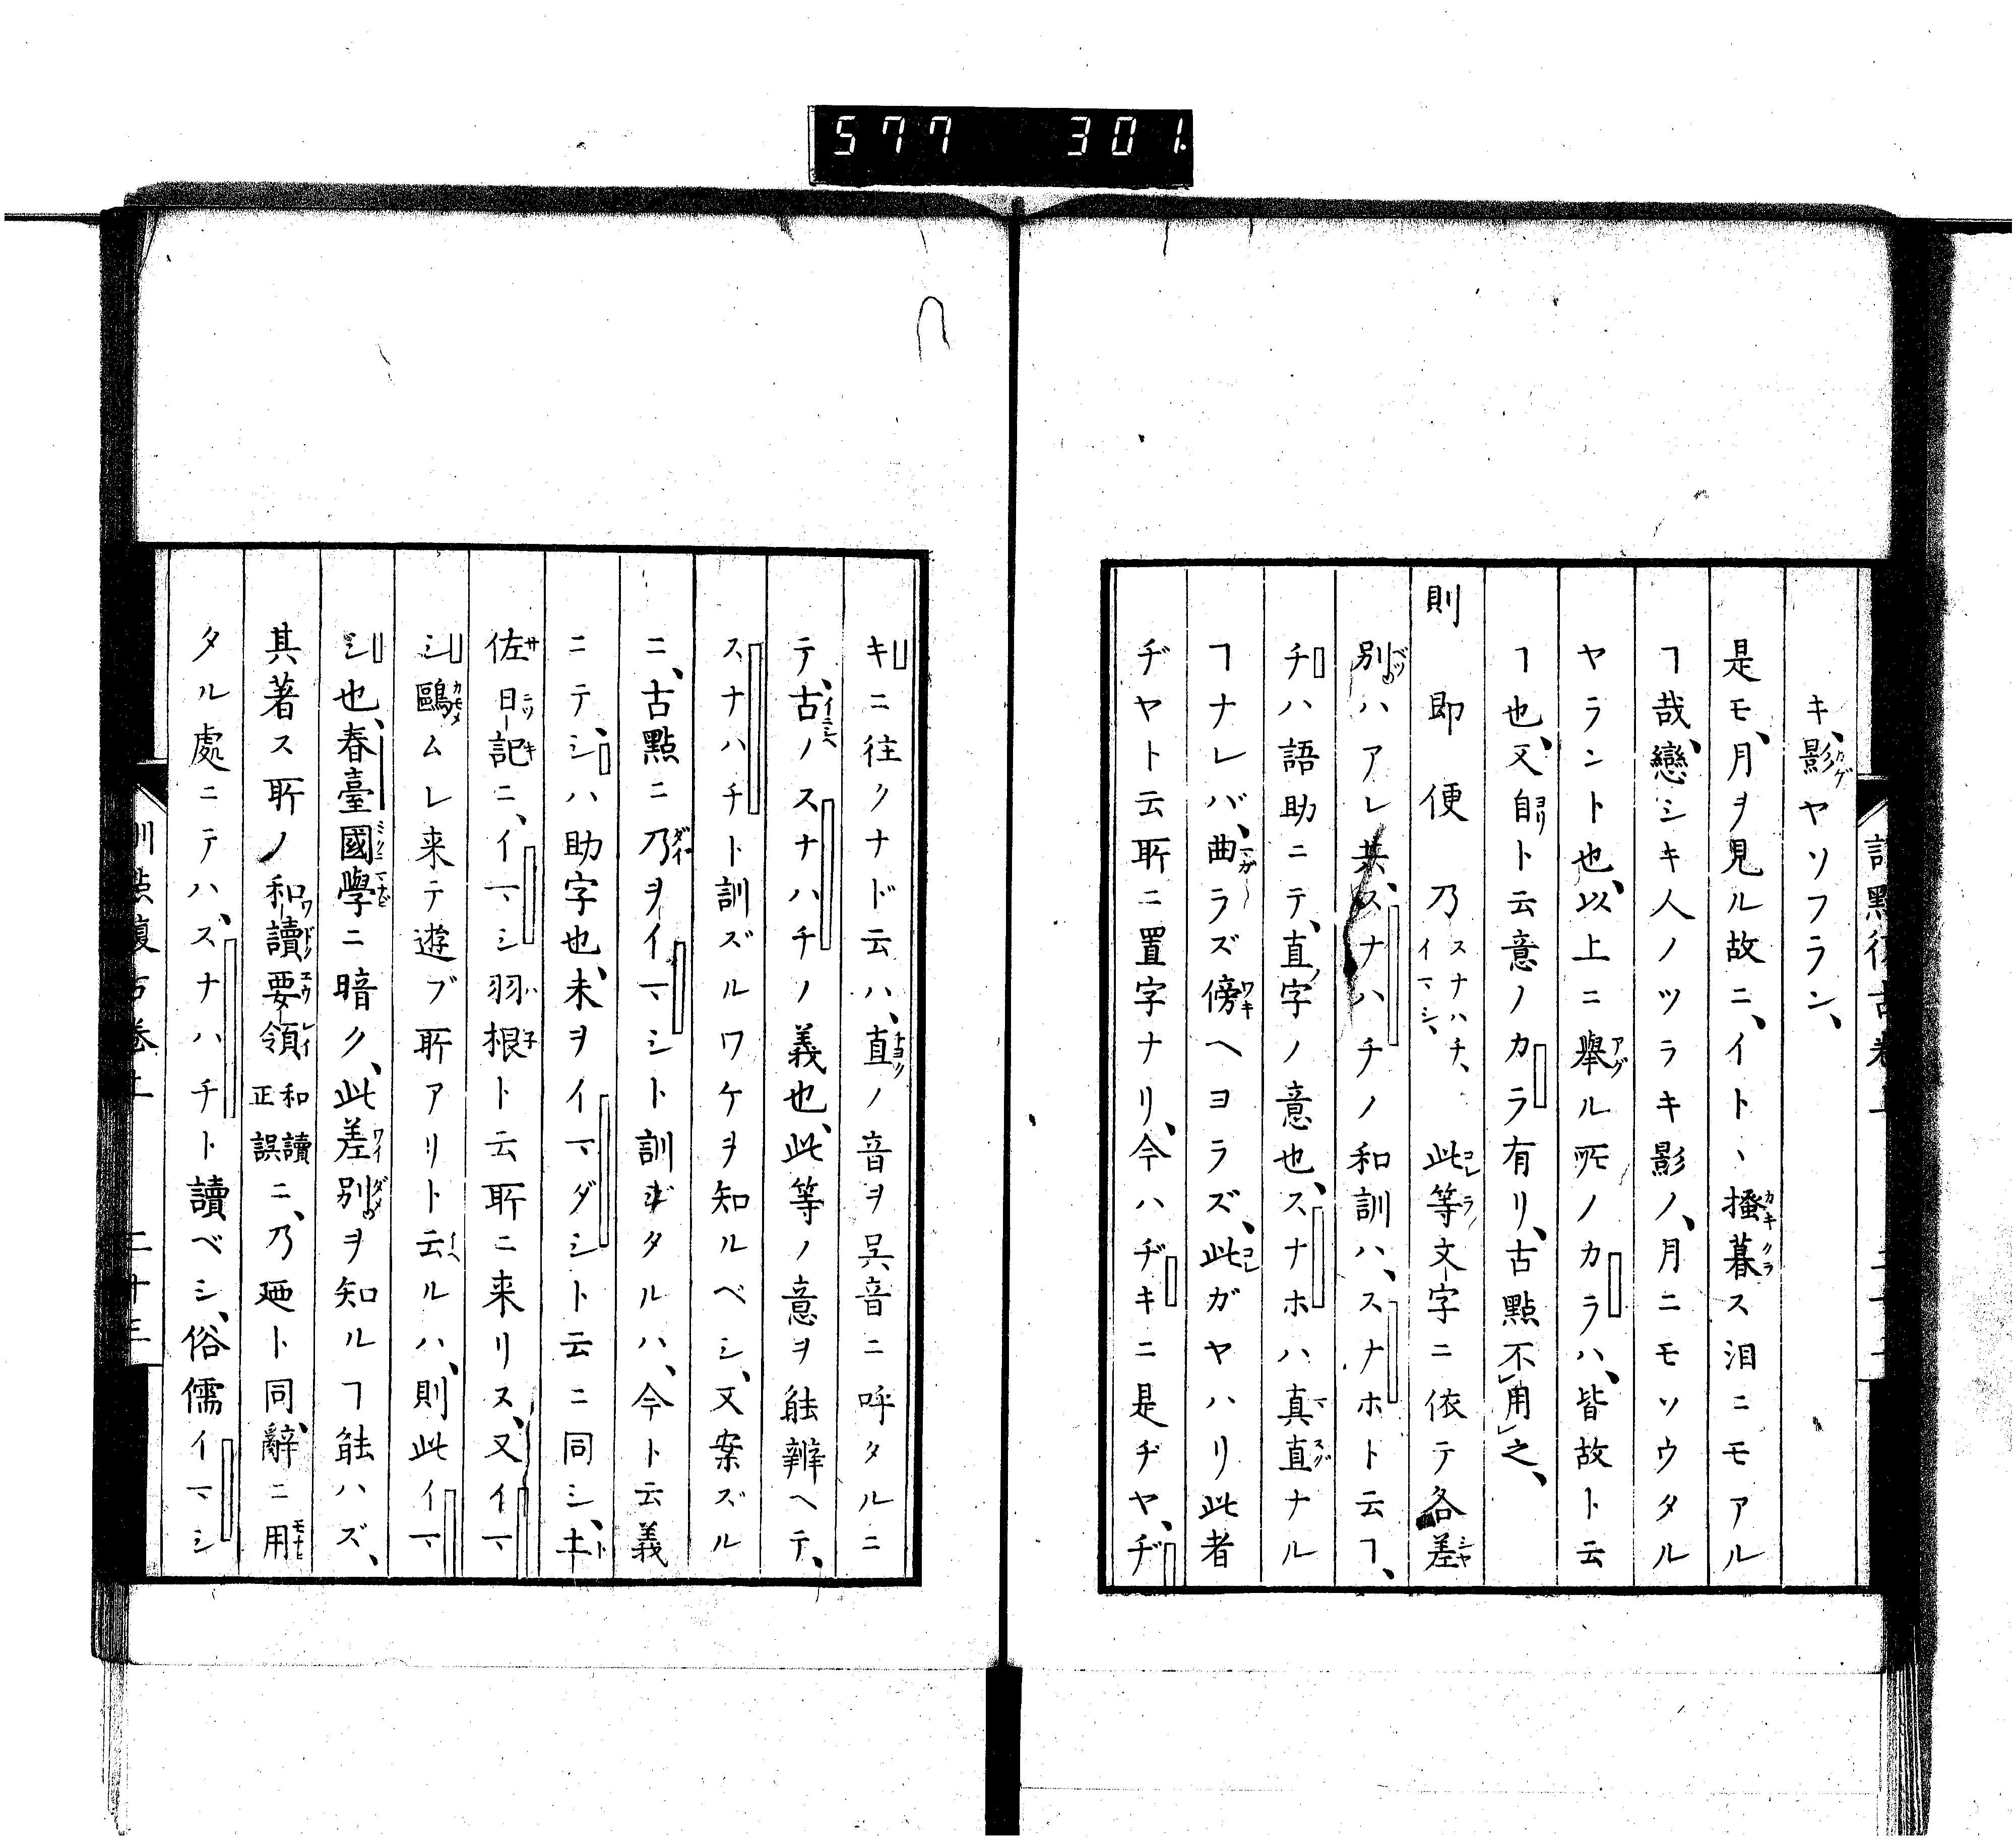 577 301
キ、影ヤソフラン、
是モ、月ヲ見ル故ニ、イト、搔暮ス泪ニモアル
ヿ哉、戀シキ人ノツラキ影ノ、月ニモソウタル
ヤラント也、以上ニ舉ル所ノカラハ、皆故ト云
ヿ也、又自ト云意ノカラ有リ、古點不用之、
則即便乃 スナハチ、イマシ、 此等文字ニ依テ各差
別ハアレ共、スナハチノ和訓ハ、スナホト云ヿ、
チハ語助ニテ、直字ノ意也、スナホハ真直ナル
ヿナレバ、曲ラズ傍ヘヨラズ、此ガヤハリ此者
ヂヤト云所ニ置字ナリ、今ハヂキニ是ヂヤ、ヂ
キニ往クナド云ハ、直ノ音ヲ呉音ニ呼タルニ
テ、古ノスナハチノ義也、此等ノ意ヲ能辨ヘテ、
スナハチト訓ズルワケヲ知ルベシ、又案ズル
ニ、古點ニ乃ヲイマシト訓ギタルハ、今ト云義
ニテ、シハ助字也、未ヲイマダシト云ニ同シ、土
佐日記ニ、イマシ羽根ト云所ニ来リヌ、又イマ
シ鷗ムレ来テ遊ブ所アリト云ルハ、則此イマ
シ也、春臺國學ニ暗ク、此差別ヲ知ルヿ能ハズ、
其著ス所ノ和讀要領 和讀正誤 ニ、乃廼ト同辭ニ用
タル處ニテハ、スナハチト讀ベシ、俗儒イマシ